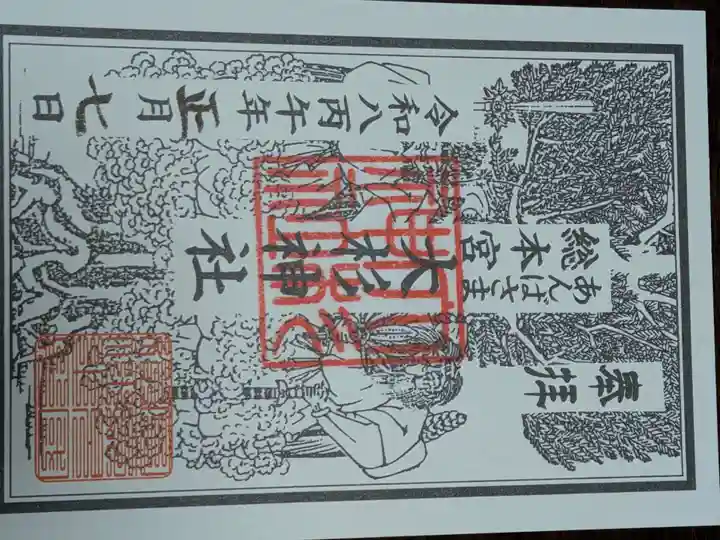 奉拝
総本宮
あんばさま
大杉神社
令和八丙午年正月七日